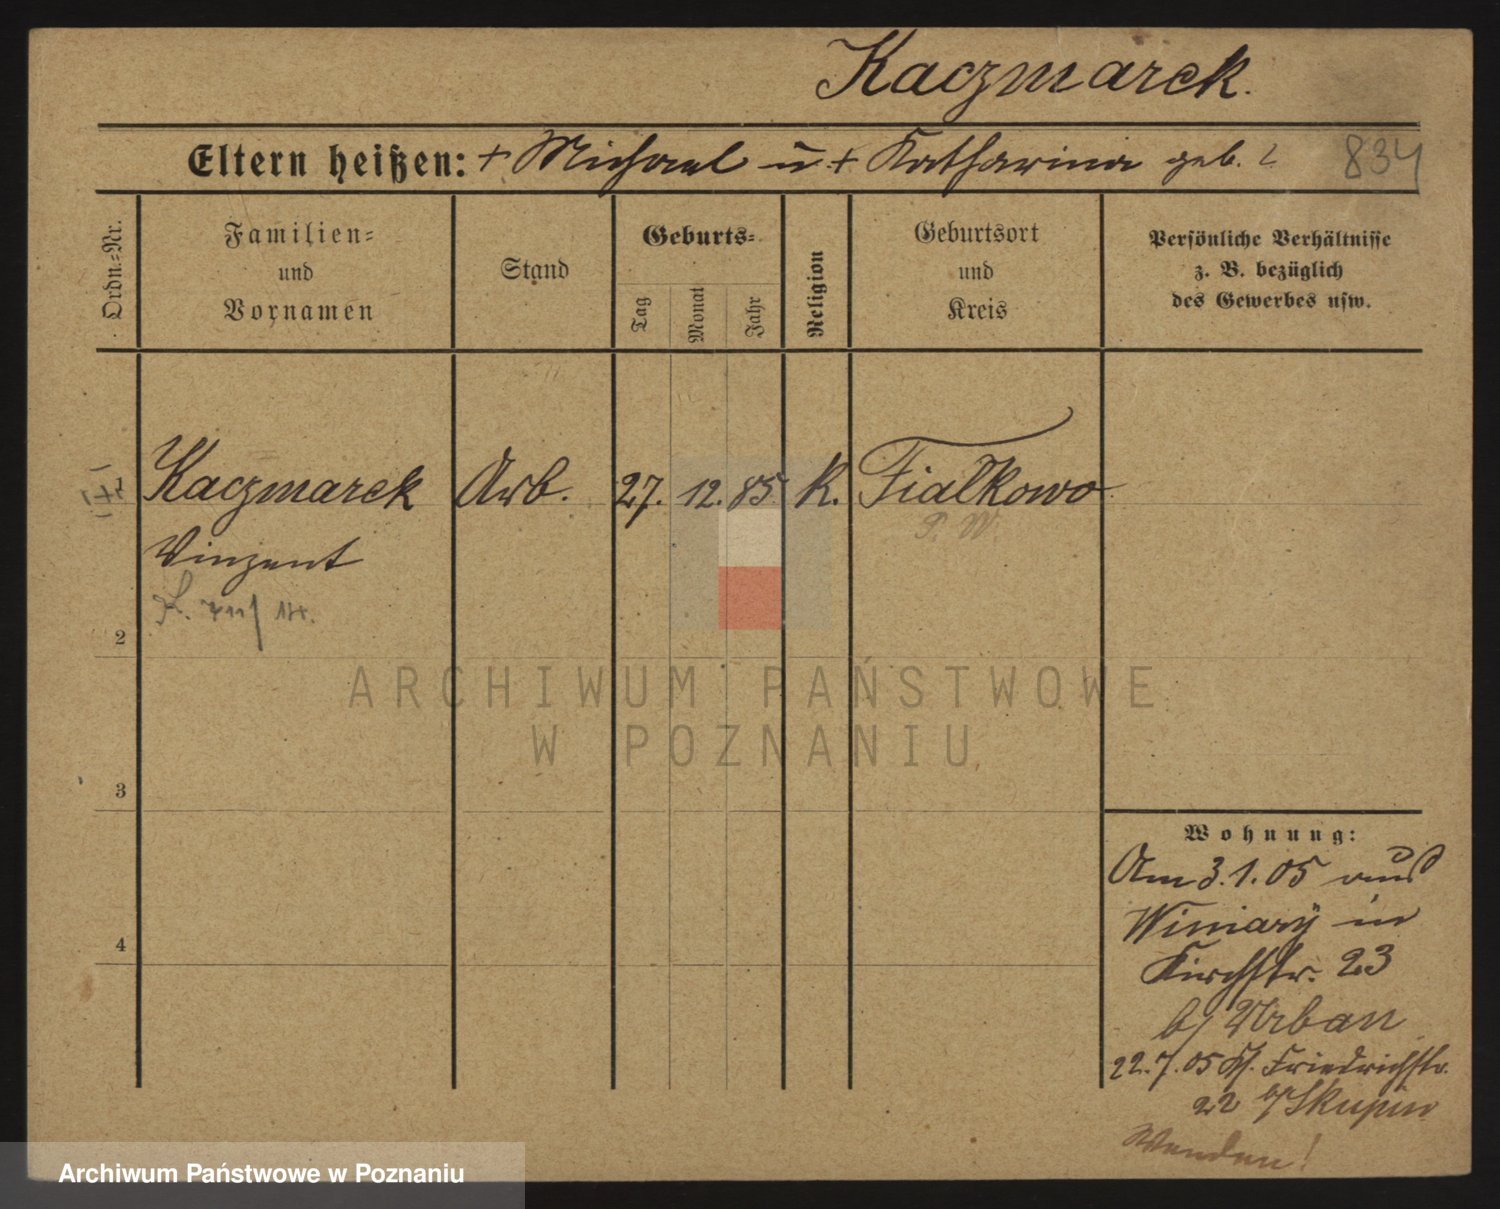 Kaczmarek.
Eltern heißen: + Michael u + Katharina geb. ?
834
Ordn.-Nr.
Familien- und Vornamen
Stand
Geburts-
Tag
Monat
Jahr
Religion
Geburtsort und Kreis
Persönliche Verhältnisse
z. B. bezüglich
des Gewerbes usw.
Kaczmarek Arb. 27. 12. 85 K. Fialkowo
P. W.
Vinzent
2
3
4
Wohnung:
Am 3.1.05 aus
Winiary in
Kirchstr. 23
b/ Urban
22.7.05 Kl. Friedrichstr.
22 b/ Skupin
Wenden!
ARCHIWUM PAŃSTWOWE
W POZNANIU
Archiwum Państwowe w Poznaniu